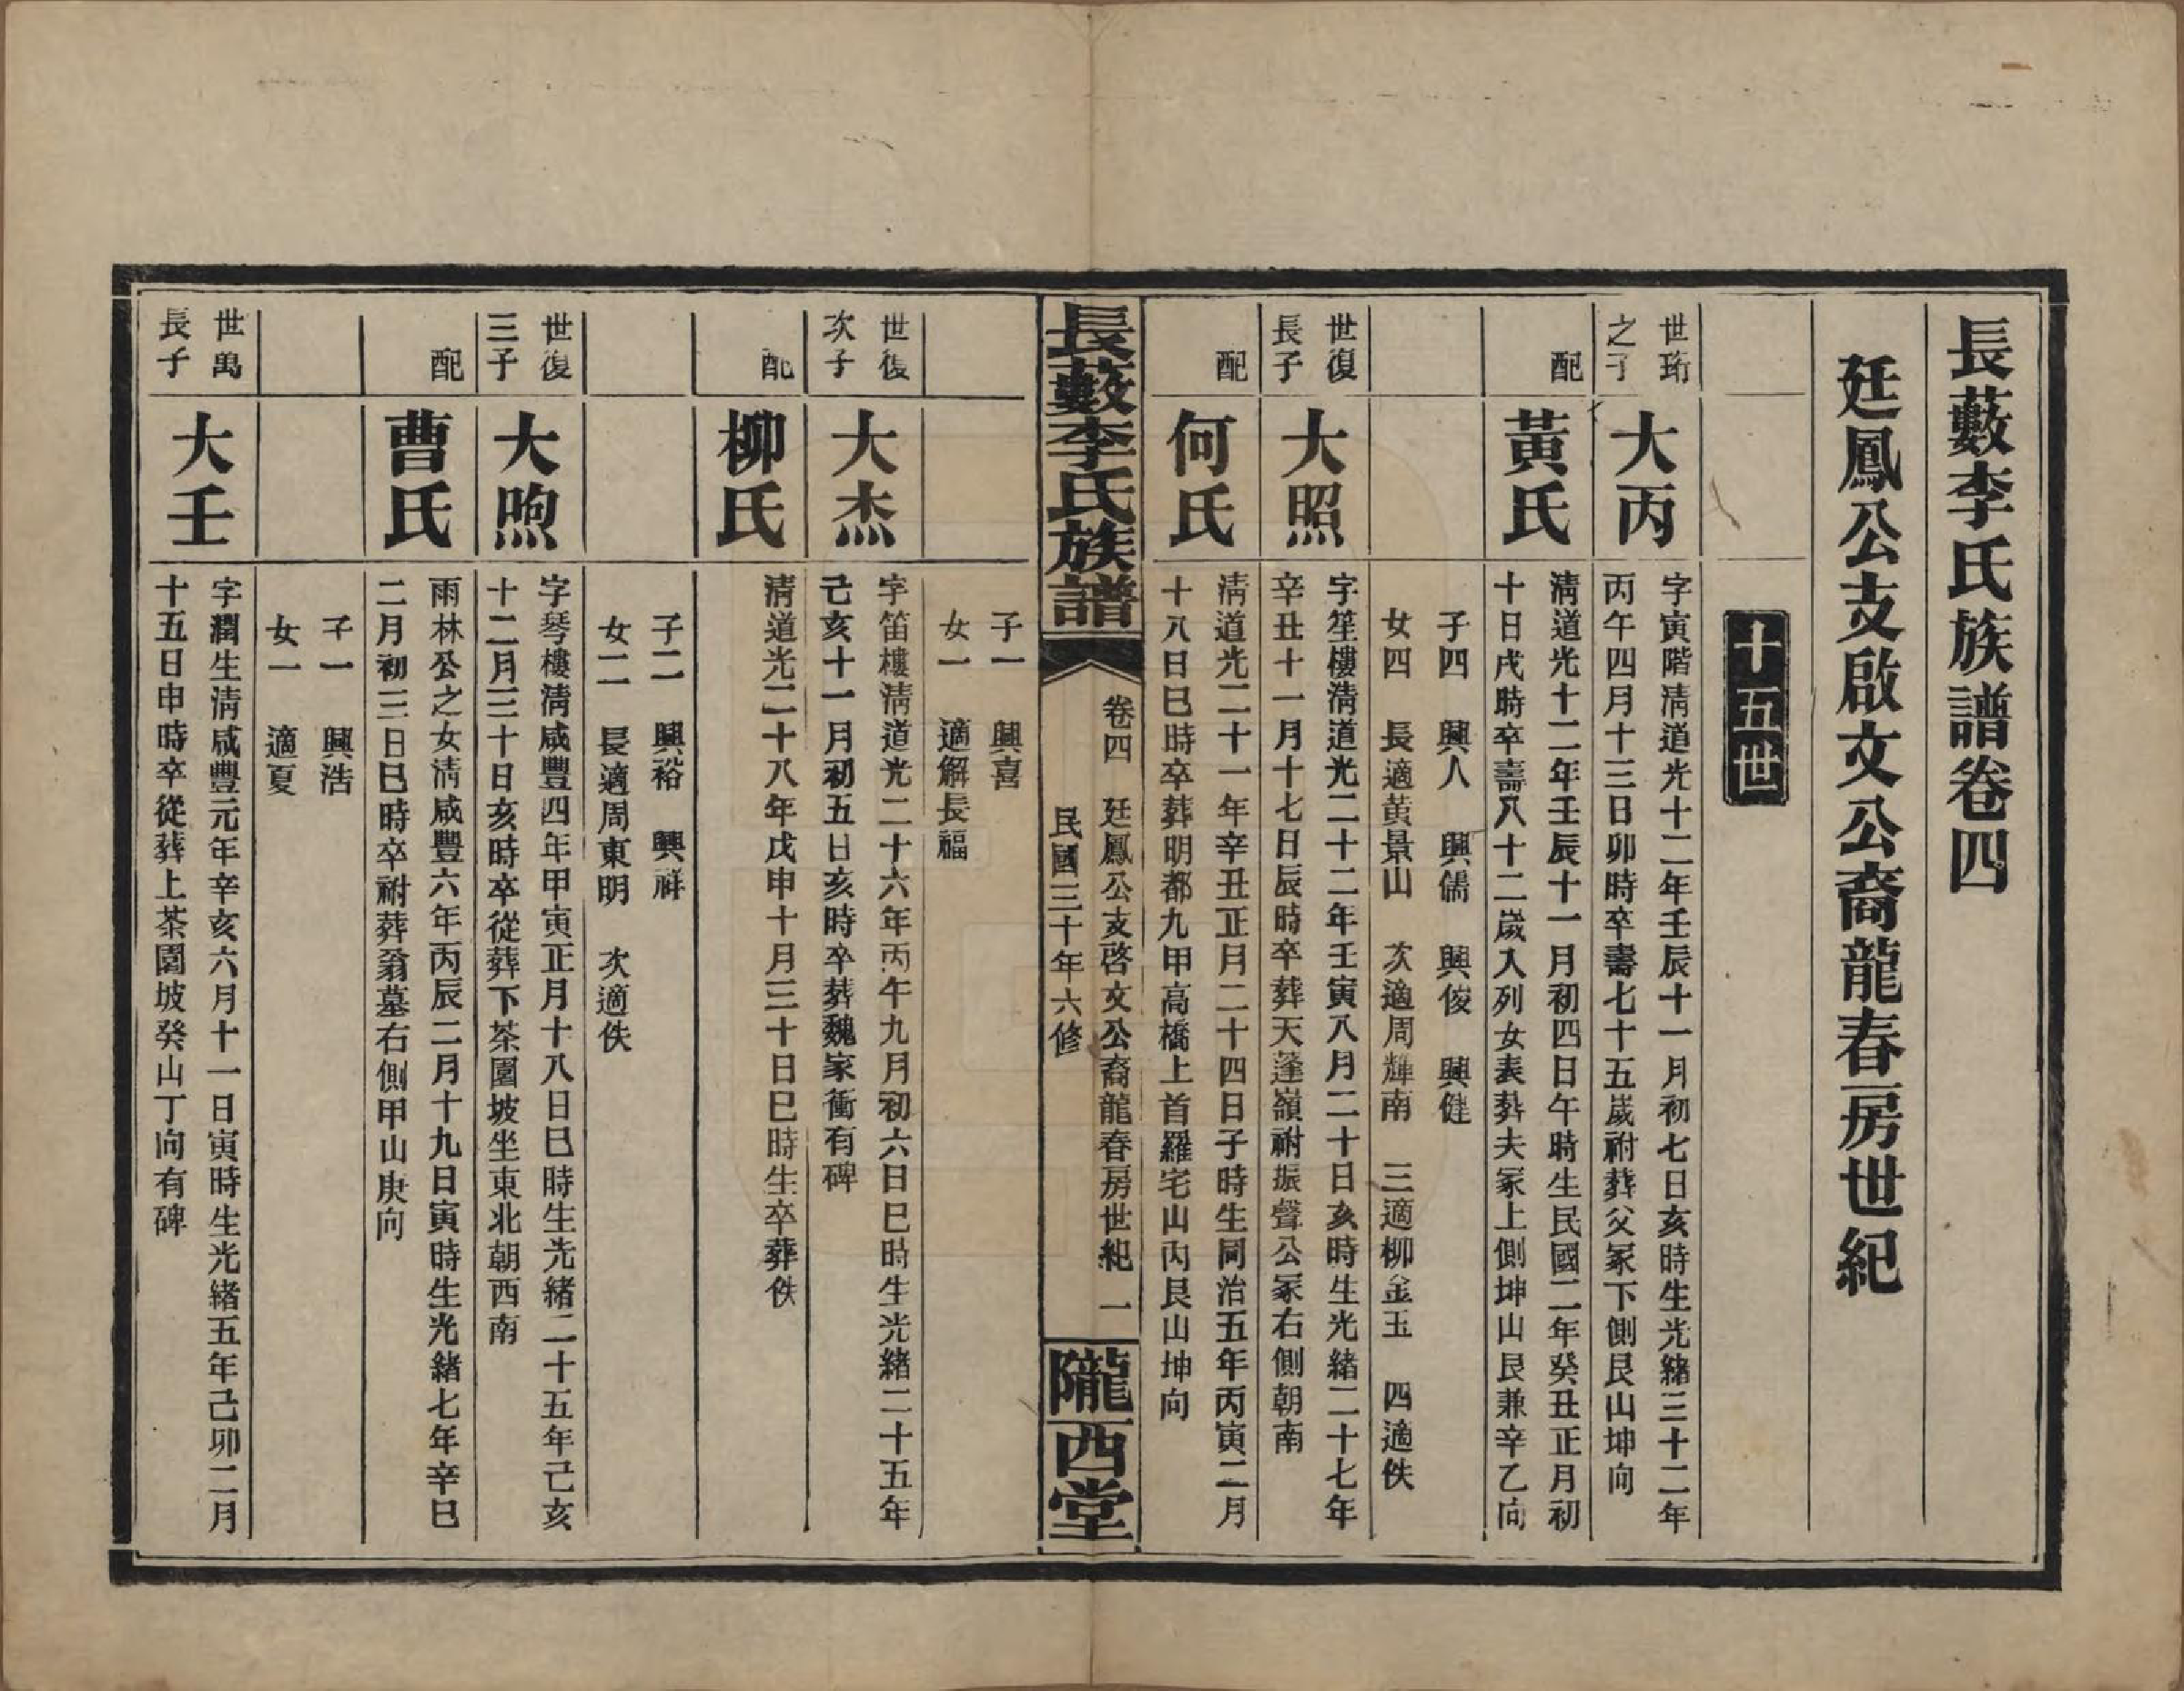 長藪李氏族譜卷四
廷鳳公支啟文公裔龍春房世紀
十五世
世珩
之子
大丙
字寅階清道光十二年壬辰十一月初七日亥時生光緒三十二年
丙午四月十三日卯時卒壽七十五歲祔葬父冢下側艮山坤向
配
黃氏
清道光十二年壬辰十一月初四日午時生民國二年癸丑正月初
十日戌時卒壽八十二歲入列女表葬夫冢上側坤山艮兼辛乙向
子四 興人 興儒 興俊 興健
女四 長適黃景山 次適周輝南 三適柳金玉 四適佚
世復
長子
大照
字笙樓清道光二十二年壬寅八月二十日亥時生光緒二十七年
辛丑十一月十七日辰時卒葬天蓬嶺祔振聲公冢右側朝南
配
何氏
清道光二十一年辛丑正月二十四日子時生同治五年丙寅二月
十八日巳時卒葬明都九甲高橋上首羅宅山內艮山坤向
長藪李氏族譜
卷四 廷鳳公支啓文公裔龍春房世紀 一
民國三十年六修
隴西堂
子一 興喜
女一 適解長福
世復
次子
大杰
字笛樓清道光二十六年丙午九月初六日巳時生光緒二十五年
己亥十一月初五日亥時卒葬魏家衝有碑
配
柳氏
清道光二十八年戊申十月三十日巳時生卒葬佚
子二 興裕 興祥
女二 長適周東明 次適佚
世復
三子
大煦
字琴樓清咸豐四年甲寅正月十八日巳時生光緒二十五年己亥
十二月三十日亥時卒從葬下茶園坡坐東北朝西南
配
曹氏
雨林公之女清咸豐六年丙辰二月十九日寅時生光緒七年辛巳
二月初三日巳時卒祔葬翁墓右側甲山庚向
子一 興浩
女一 適夏
世萬
長子
大壬
字潤生清咸豐元年辛亥六月十一日寅時生光緒五年己卯二月
十五日申時卒從葬上茶園坡癸山丁向有碑